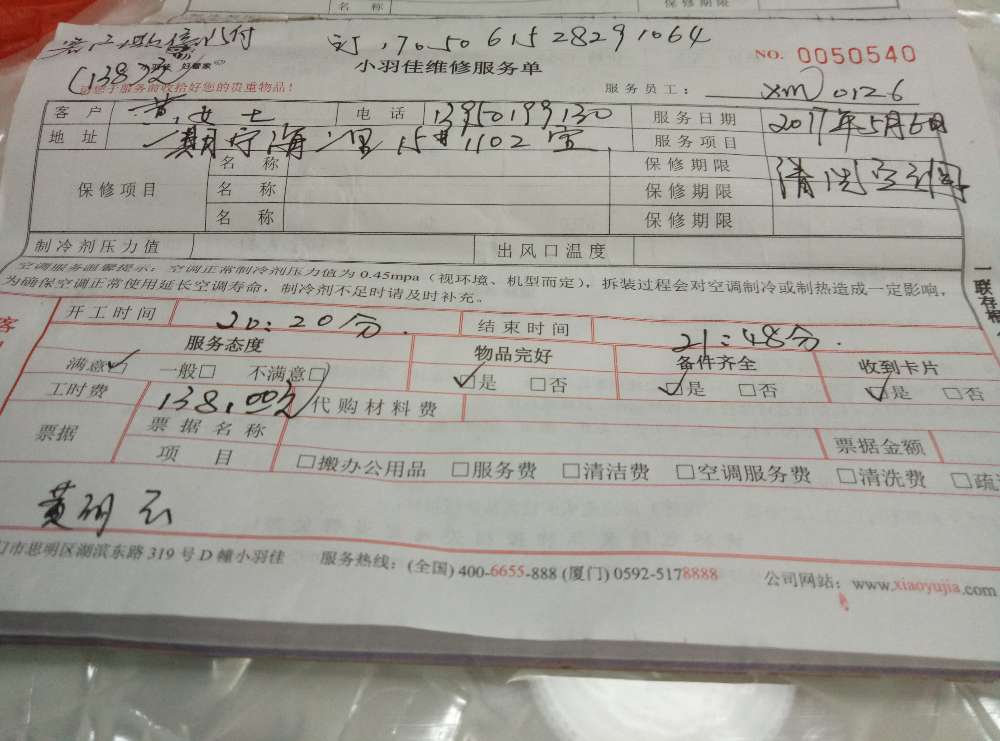 名 称 保修期限
客户微信以付 订 , 705061528291064
(138元) 好管家 小羽佳维修服务单 NO. 0050540
于服务前收拾好您的贵重物品! 服务员工: xm 0126
客 户 黄女士 电 话 13950199130 服务日期 2017年5月6日
地 址 一期宁海二里15#1102室 服务项目 清洗空调
保修项目 名 称 保修期限
名 称 保修期限
名 称 保修期限
制冷剂压力值 出风口温度
空调服务温馨提示: 空调正常制冷剂压力值为 0.45mpa (视环境、机型而定), 拆装过程会对空调制冷或制热造成一定影响,
为确保空调正常使用延长空调寿命, 制冷剂不足时请及时补充。
一联存
客
开工时间 20:20分. 结束时间 21:48分.
服务态度 物品完好 备件齐全 收到卡片
满意✓ 一般□ 不满意□ ☑是 □否 ☑是 □否 ☑是 □否
工时费 138.00元 代购材料费
票据 票据名称 票据金额
项 目 □搬办公用品 □服务费 □清洁费 □空调服务费 □清洗费 □疏
黄明云
门市思明区湖滨东路 319 号 D 幢小羽佳 服务热线: (全国) 400-6655-888 (厦门) 0592-5178888 公司网站: www.xiaoyujia.com